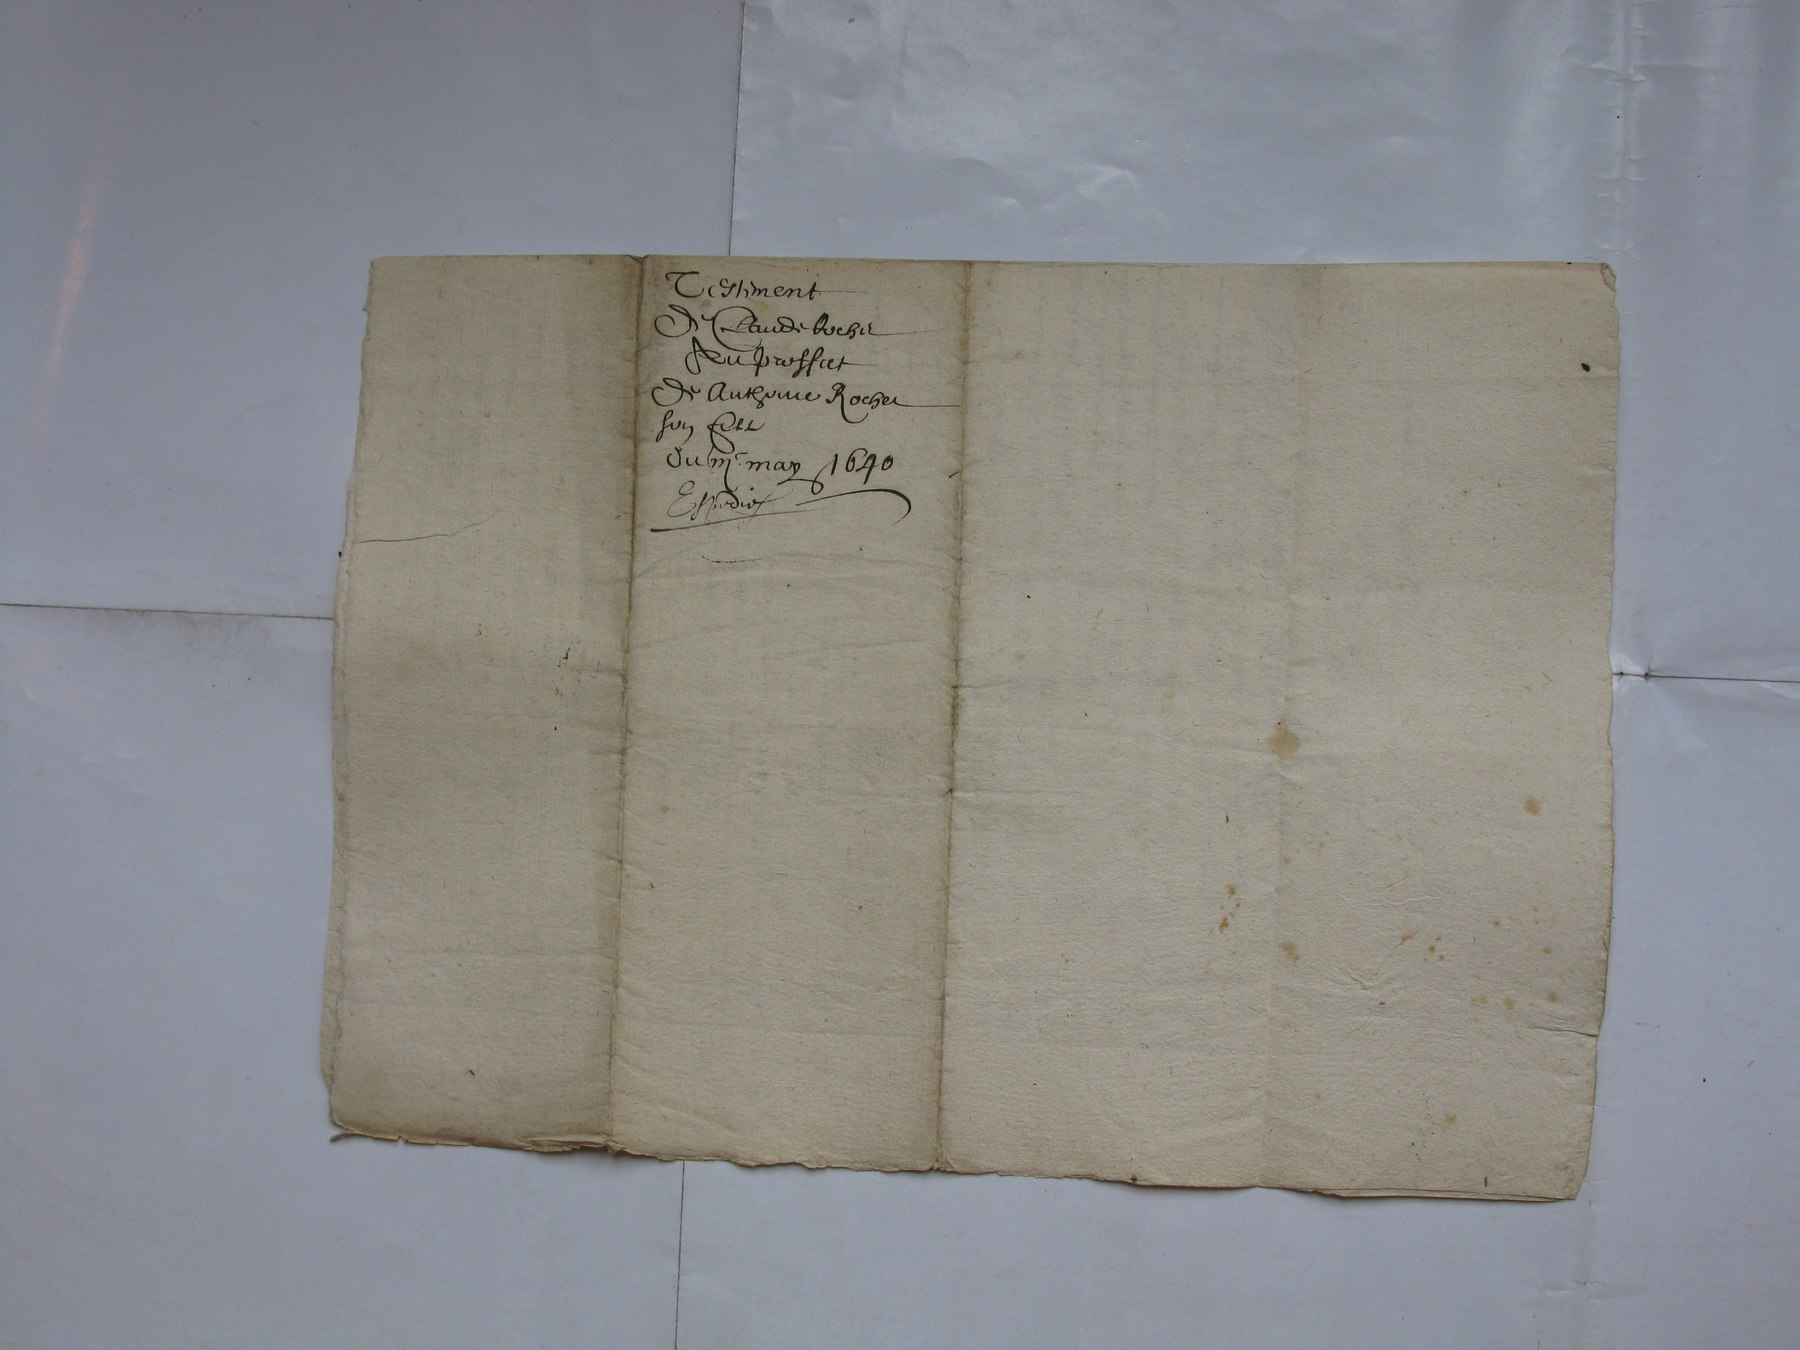 Testiment
de Claude Rocher
feu proffict
de Anthoine Rocher
son filz
du may 1640
Expedie